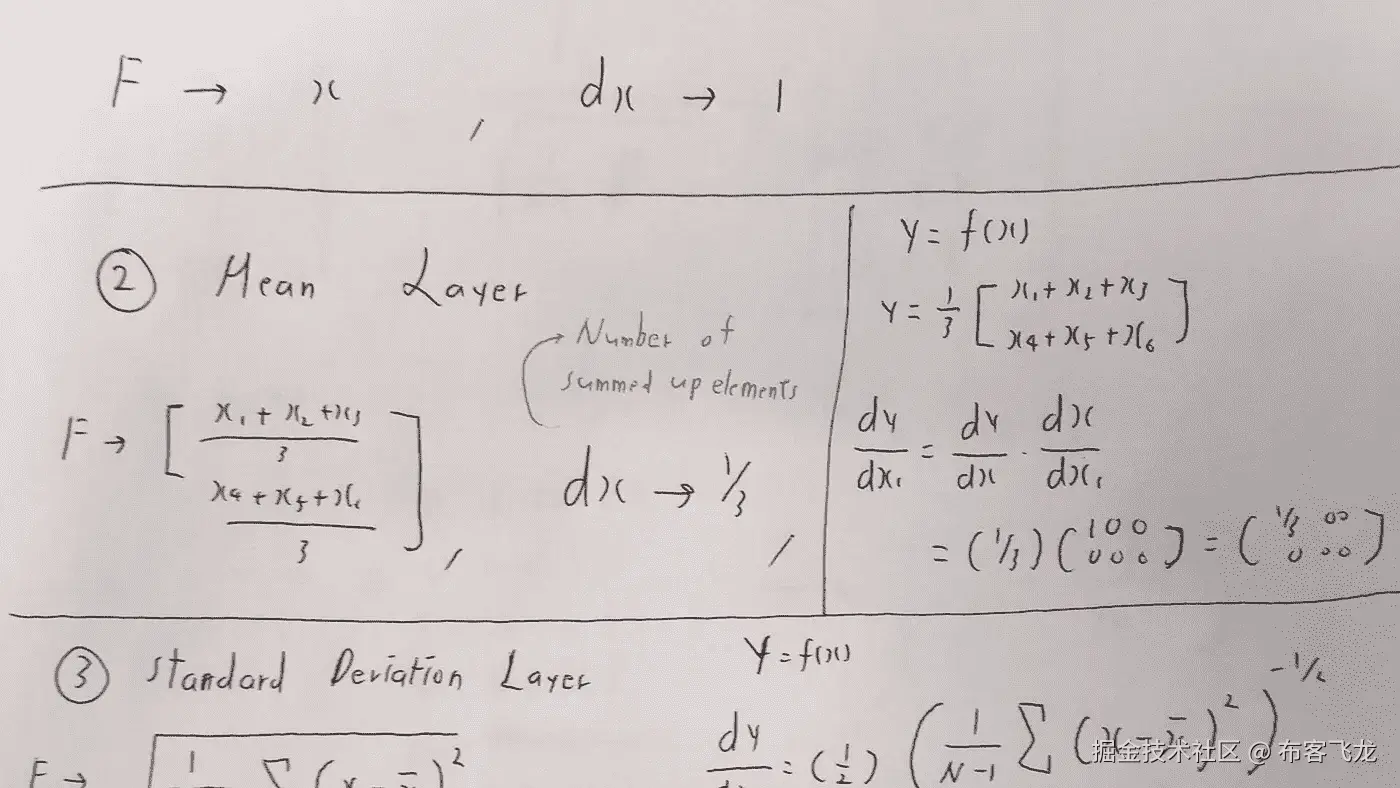 F → x , dx → 1
② Mean Layer
→ Number of
summed up elements
F → [ (x₁ + x₂ + x₃)/3
(x₄ + x₅ + x₆)/3 ] , dx → 1/3 ,
Y = f(x)
Y = 1/3 [ x₁ + x₂ + x₃
x₄ + x₅ + x₆ ]
dy/dx₁ = dy/dx · dx/dx₁
= (1/3) ( 1 0 0
0 0 0 ) = ( 1/3 0 0
0 0 0 )
③ Standard Deviation Layer
Y = f(x)
F → √ 1 Σ (x - x̄)²
dy = (1/2) ( 1/(N-1) Σ (x - x̄)² )^(-1/2)
掘金技术社区 @ 布客飞龙